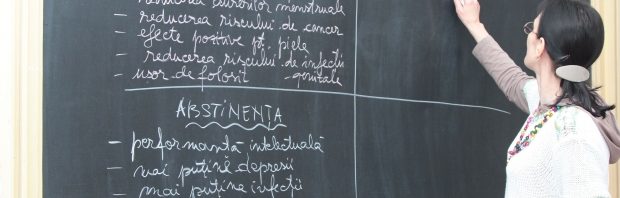 durerilor menstruale
- reducerea riscului de cancer
- efecte pozitive pt. piele
- reducerea riscului de infecții
- ușor de folosit genitale
ABSTINENȚA
- performanță intelectuală
- mai puține depresii
- mai puține infecții